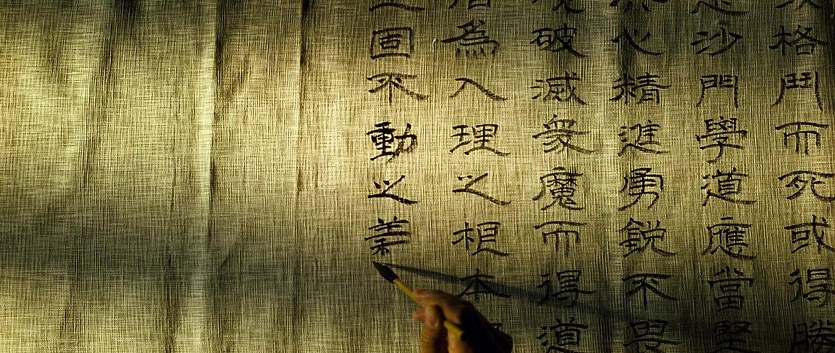 格鬥而死或得勝
沙門學道應當堅
心精進勇銳不畏
破滅衆魔而得道
為入理之根本
固不動之